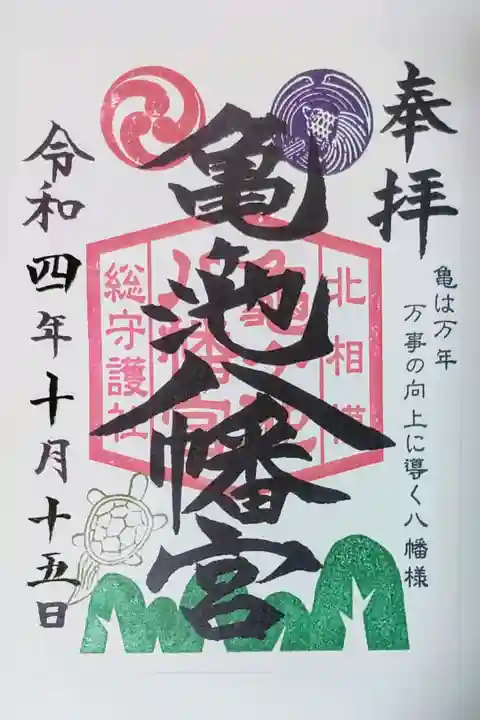 奉拝
亀は万年
万事の向上に導く八幡様
北相模
総守護社
亀池八幡宮
令和四年十月十五日